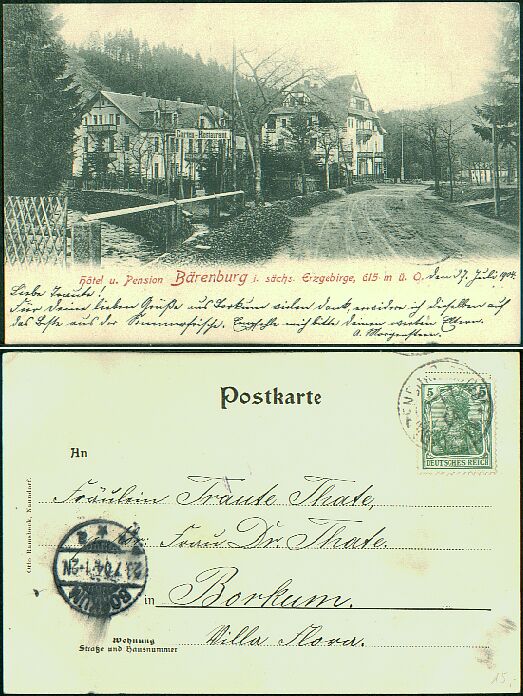 Garten-Restaurant
Hôtel u. Pension Bärenburg i. sächs. Erzgebirge, 615 m ü. O. den 27. Juli 1904.
Liebe Traute!
Für Deine lieben Grüße aus Borkum vielen Dank, erwidere ich dieselben auf
das Beste aus der Sommerfrische. Empfehle mich bitte deinen werten Eltern.
A. Morgenstern.
Postkarte
5 5
DEUTSCHES REICH
An
Fräulein Traute Thate,
Frau Dr. Thate.
BORKUM
in Borkum.
Villa Flora.
Wohnung
Straße und Hausnummer
Otto Ramsbock, Naundorf.
15.-